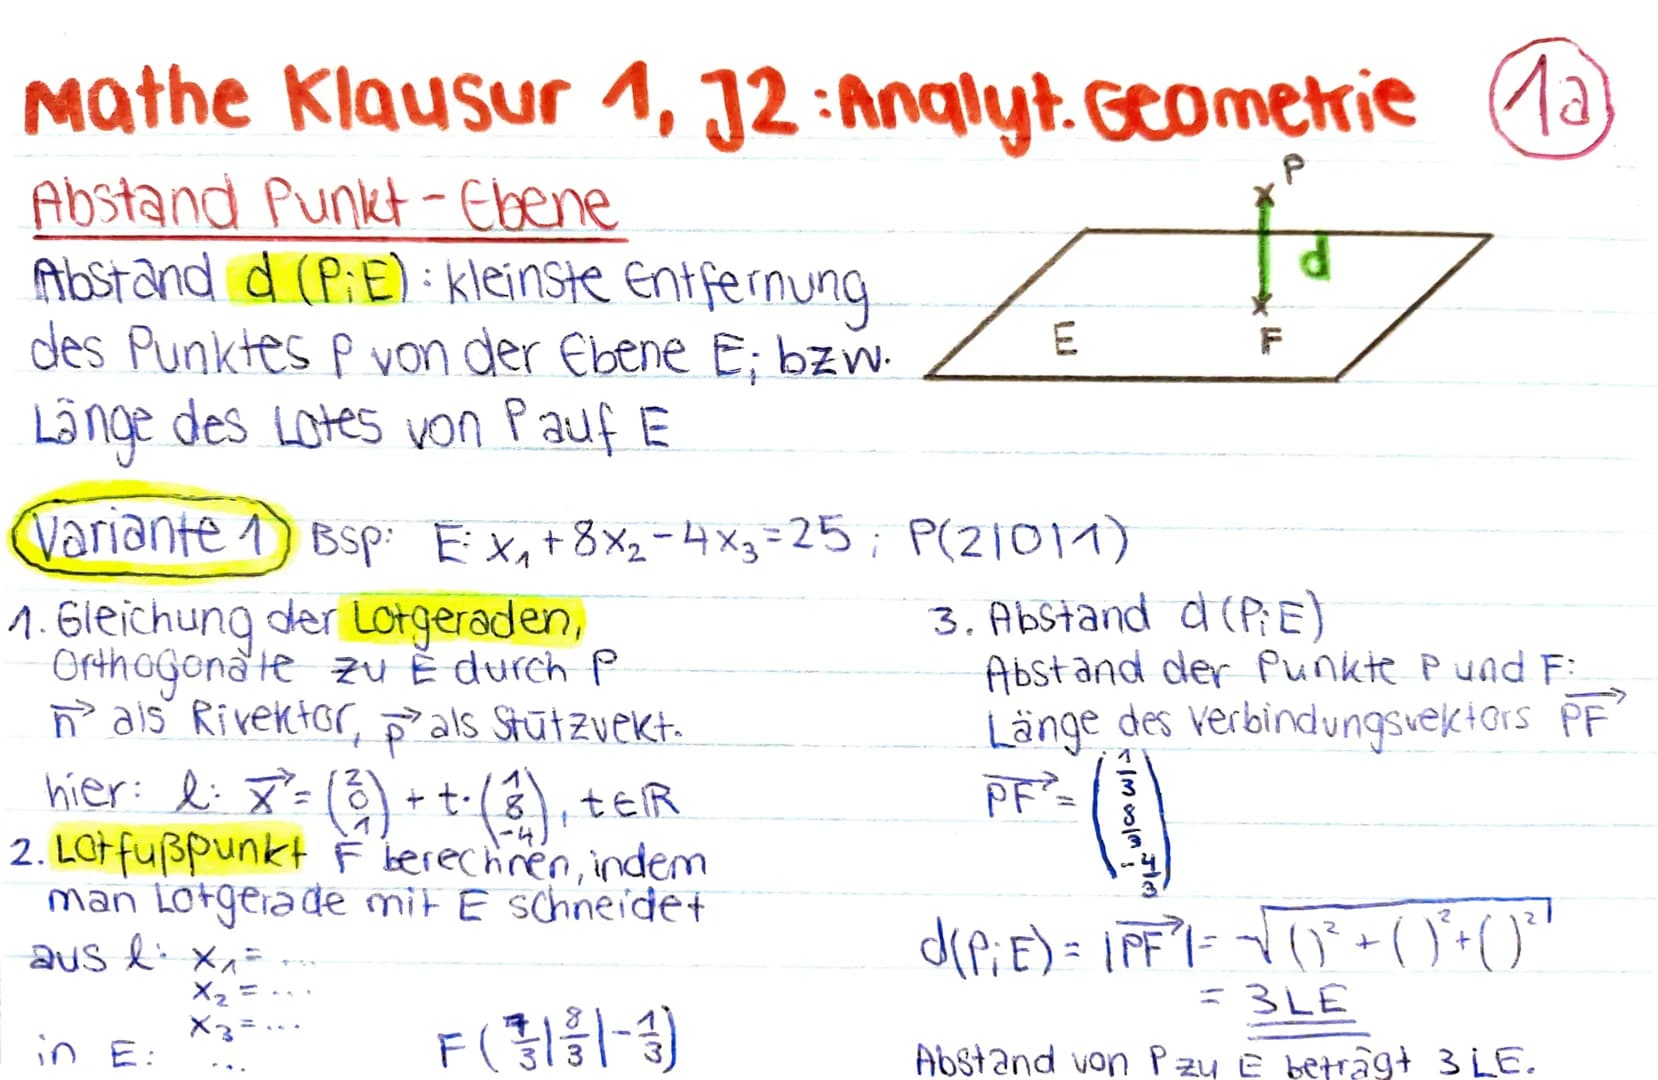 Mathe Klausur 1, J2: Analyt. Geometrie
1a
Abstand Punkt-Ebene
Abstand d (P;E): kleinste Entfernung
des Punktes P von der Ebene E; bzw.
Länge des Lotes von P auf E
P
d
E
F
Variante 1 Bsp: E: x₁+8x₂-4x₃=25; P(2|0|1)
1. Gleichung der Lotgeraden,
Orthogonale zu E durch P
n⃗ als Rivektor, p⃗ als Stützvekt.
hier: l: x⃗ = (2 0 1) + t·(1 8 -4), t∈ℝ
2. Lotfußpunkt F berechnen, indem
man Lotgerade mit E schneidet
aus l: x₁= ...
x₂ = ...
x₃ = ...
in E: ...
F (7/3|8/3|-1/3)
3. Abstand d(P;E)
Abstand der Punkte P und F:
Länge des Verbindungsvektors PF⃗
PF⃗ = (1/3 8/3 -4/3)
d(P;E) = |PF⃗| = √()² + ()² + ()²
= 3 LE
Abstand von P zu E beträgt 3 LE.